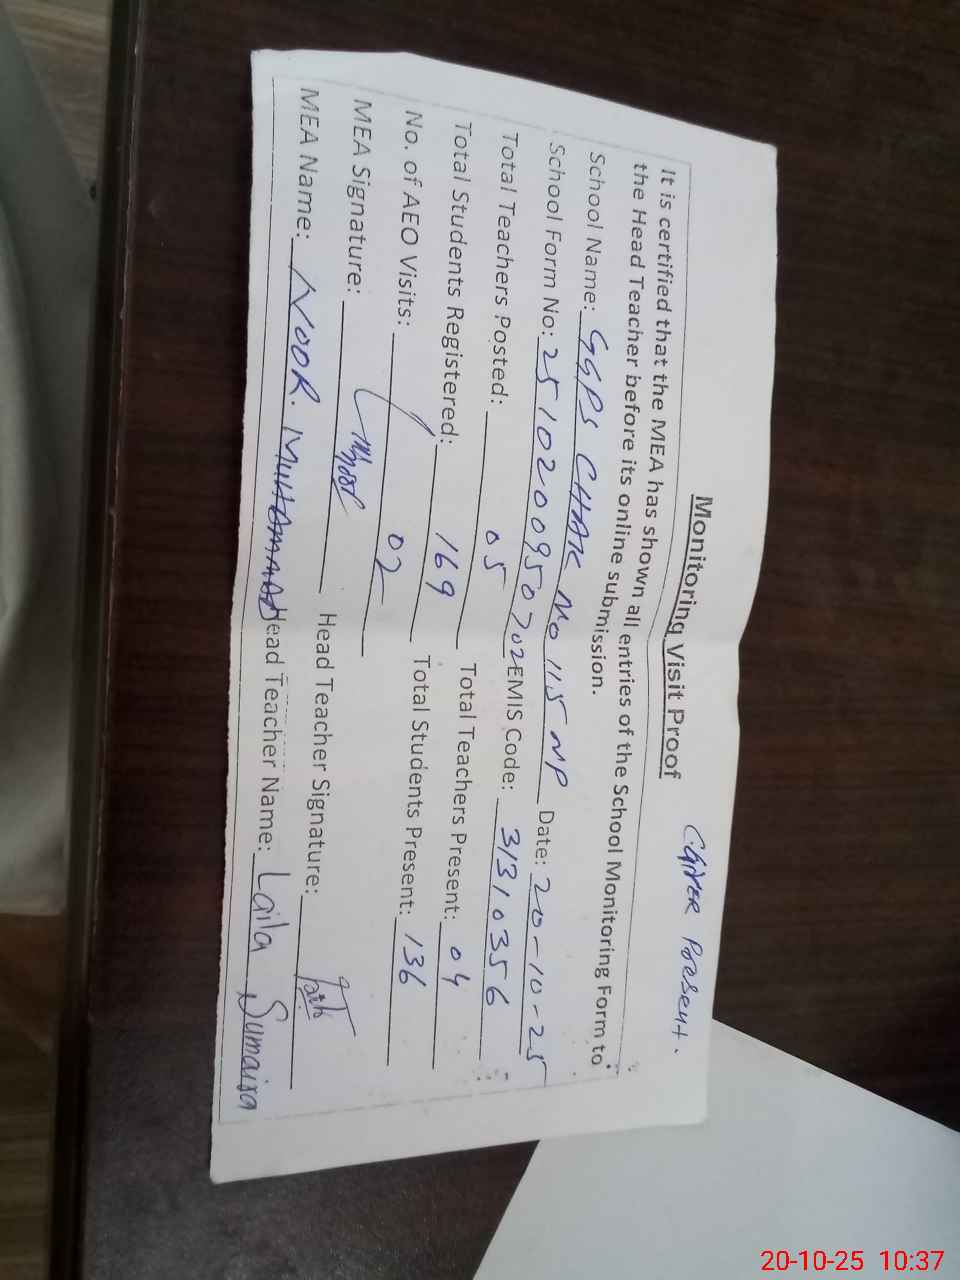 Monitoring Visit Proof
C.Giver Present.
It is certified that the MEA has shown all entries of the School Monitoring Form to
the Head Teacher before its online submission.
School Name: GGPS CHAK No 115 NP Date: 20-10-25
School Form No: 25102009507202 EMIS Code: 31310356
Total Teachers Posted: 05 Total Teachers Present: 04
Total Students Registered: 169 Total Students Present: 136
No. of AEO Visits: 02
MEA Signature: Head Teacher Signature:
MEA Name: NOOR. MUHAMMAD Head Teacher Name: Laila Sumaira
20-10-25 10:37